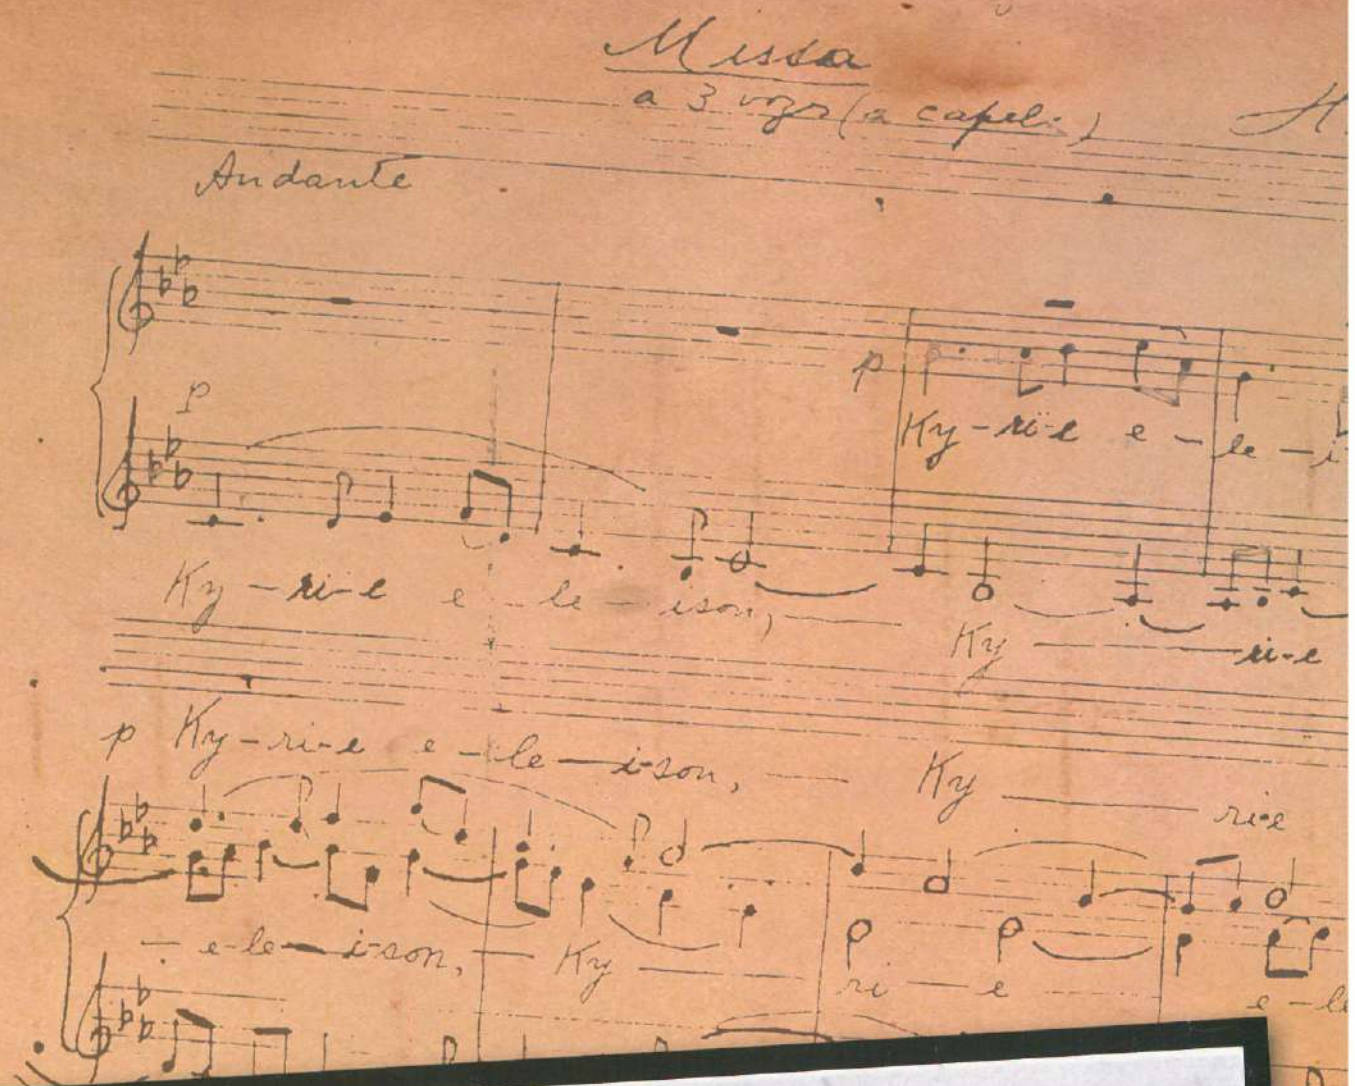 Missa
a 3 vozes (a capel.) H
Andante
p
Ky-ri-e e-le-i
p
Ky-ri-e e-le-ison, Ky ri-e
p Ky-ri-e e-le-i-son, Ky ri-e
e-le-i-son, Ky ri-e e-le